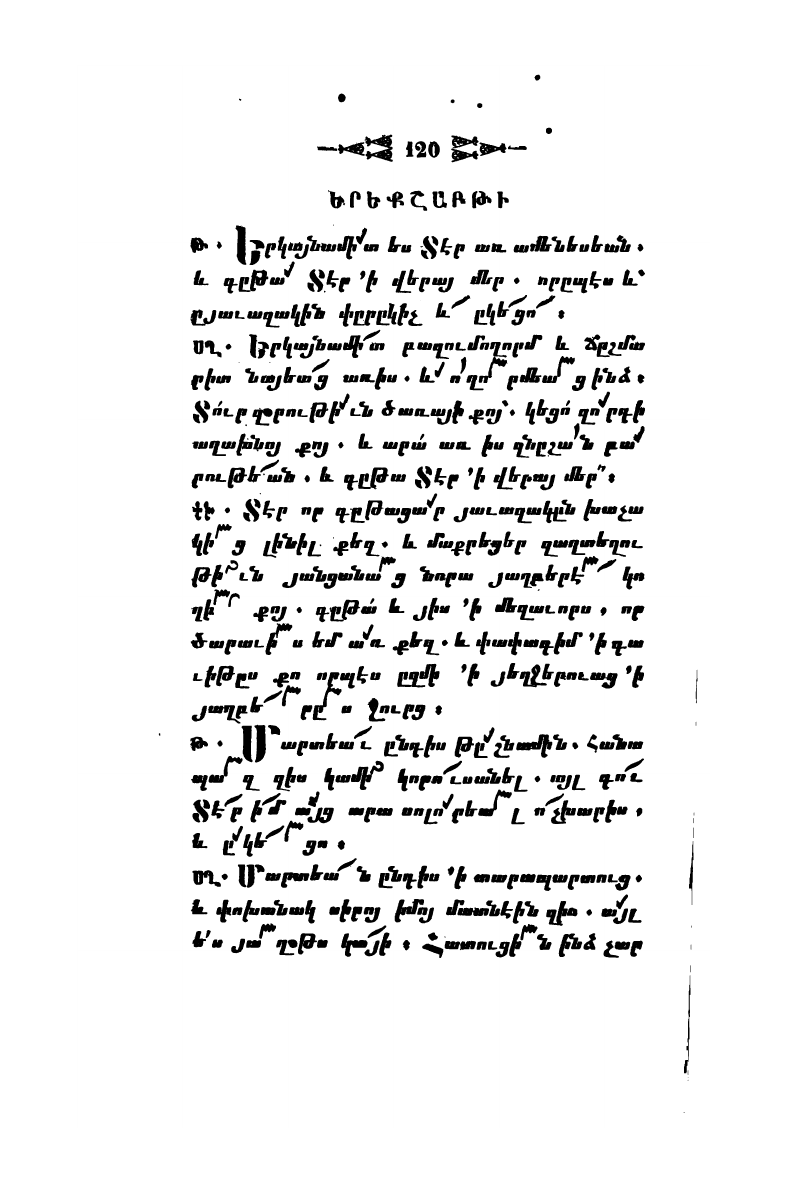 120
ԵՐԵՔՇԱԲԹԻ
Թ. Երկայնամիտ ես Տէր առ ամենեսեան.
և գըթա Տէր ՚ի վերայ մեր. որըպէս և՝
ըյաւազակին փըրըկիչ և ըկեցո։
ՍՂ. Երկայնամիտ բազումողորմ և ճըշմա
րիտ նայեաց առիս. և ո՛ղորմեաց ինձ։
Տո՛ւր զօրութիւն ծառայի քոյ՝. կեցո՛ զորդի
աղախնոյ քոյ. և արա՛ առ իս զնըշան բա
րութեան. և գըթա Տէր ՚ի վերայ մեր՞։
ԳԻ. Տէր որ գըթացար յաւազակըն խաչա
կից լինիլ քեզ. և մաքրեցեր զաղտեղու
թիւն յանցանաց նորա յաղբերէ կո
ղի քոյ. գըթա՛ և յիս ՚ի մեղաւորս, որ
ծարաւիս եմ առ քեզ. և փափագիմ ՚ի գա
ւիթըս քո որպէս ըզմի ՚ի յեղջերուաց ՚ի
յաղբերըս ջուրց։
Թ. Մարտեաւ ընդիս թըշնամին. Հանա
պազ զիս կամի կորուսանել. այլ դու
Տէր իմ այց արա մոլորեալ ոչխարիս,
և ըկեցո։
ՍՂ. Մարտեան ընդիս ՚ի տարապարտուց.
և փոխանակ սիրոյ իմոյ մատնէին զիս. այլ
ես յաղօթս կայի։ Հատուցին ինձ չար